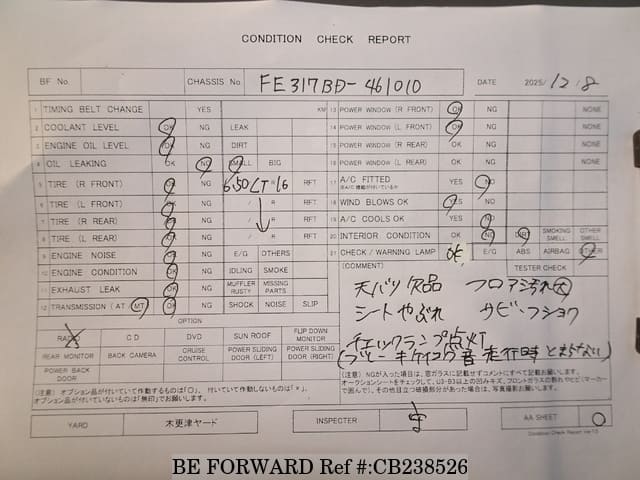 CONDITION CHECK REPORT
BF No. CHASSIS No. FE317BD-461010 DATE 2025/12/8
1 TIMING BELT CHANGE YES KM 13 POWER WINDOW (R FRONT) OK NG NONE
2 COOLANT LEVEL OK NG LEAK 14 POWER WINDOW (L FRONT) OK NG NONE
3 ENGINE OIL LEVEL OK NG DIRT 15 POWER WINDOW (R REAR) OK NG NONE
4 OIL LEAKING OK NG SMALL BIG 16 POWER WINDOW (L REAR) OK NG NONE
5 TIRE (R FRONT) OK NG 6.50 / LT R 16 RFT 17 A/C FITTED YES NO
6 TIRE (L FRONT) OK NG / R RFT 18 WIND BLOWS OK YES NO
7 TIRE (R REAR) OK NG / R RFT 19 A/C COOLS OK YES NO
8 TIRE (L REAR) OK NG / R RFT 20 INTERIOR CONDITION OK NG DIRT SMOKING SMELL OTHER SMELL
9 ENGINE NOISE OK NG E/G OTHERS 21 CHECK / WARNING LAMP OK E/G ABS AIRBAG OTHER
10 ENGINE CONDITION OK NG IDLING SMOKE (COMMENT) TESTER CHECK
11 EXHAUST LEAK OK NG MUFFLER RUSTY MISSING PARTS 天バリ欠品 フロア汚れ大
12 TRANSMISSION (AT MT) OK NG SHOCK NOISE SLIP シートやぶれ サビ・フショク
OPTION
RADIO CD DVD SUN ROOF FLIP DOWN MONITOR チェックランプ点灯
REAR MONITOR BACK CAMERA CRUISE CONTROL POWER SLIDING DOOR (LEFT) POWER SLIDING DOOR (RIGHT) (ブザーキケイコク音走行時とまらない)
POWER BACK DOOR
(注意) オプション品が付いていて作動するものは「○」, 付いていて作動しないものは「×」,
オプション品が付いていないものは「無印」でお願いします。
(注意) NGが入った項目は、窓ガラスに記載せずコメントにすべて記載お願いします。
YARD 木更津ヤード INSPECTER AA SHEET ○
Condition Check Report Ver.1.0
BE FORWARD Ref #:CB238526